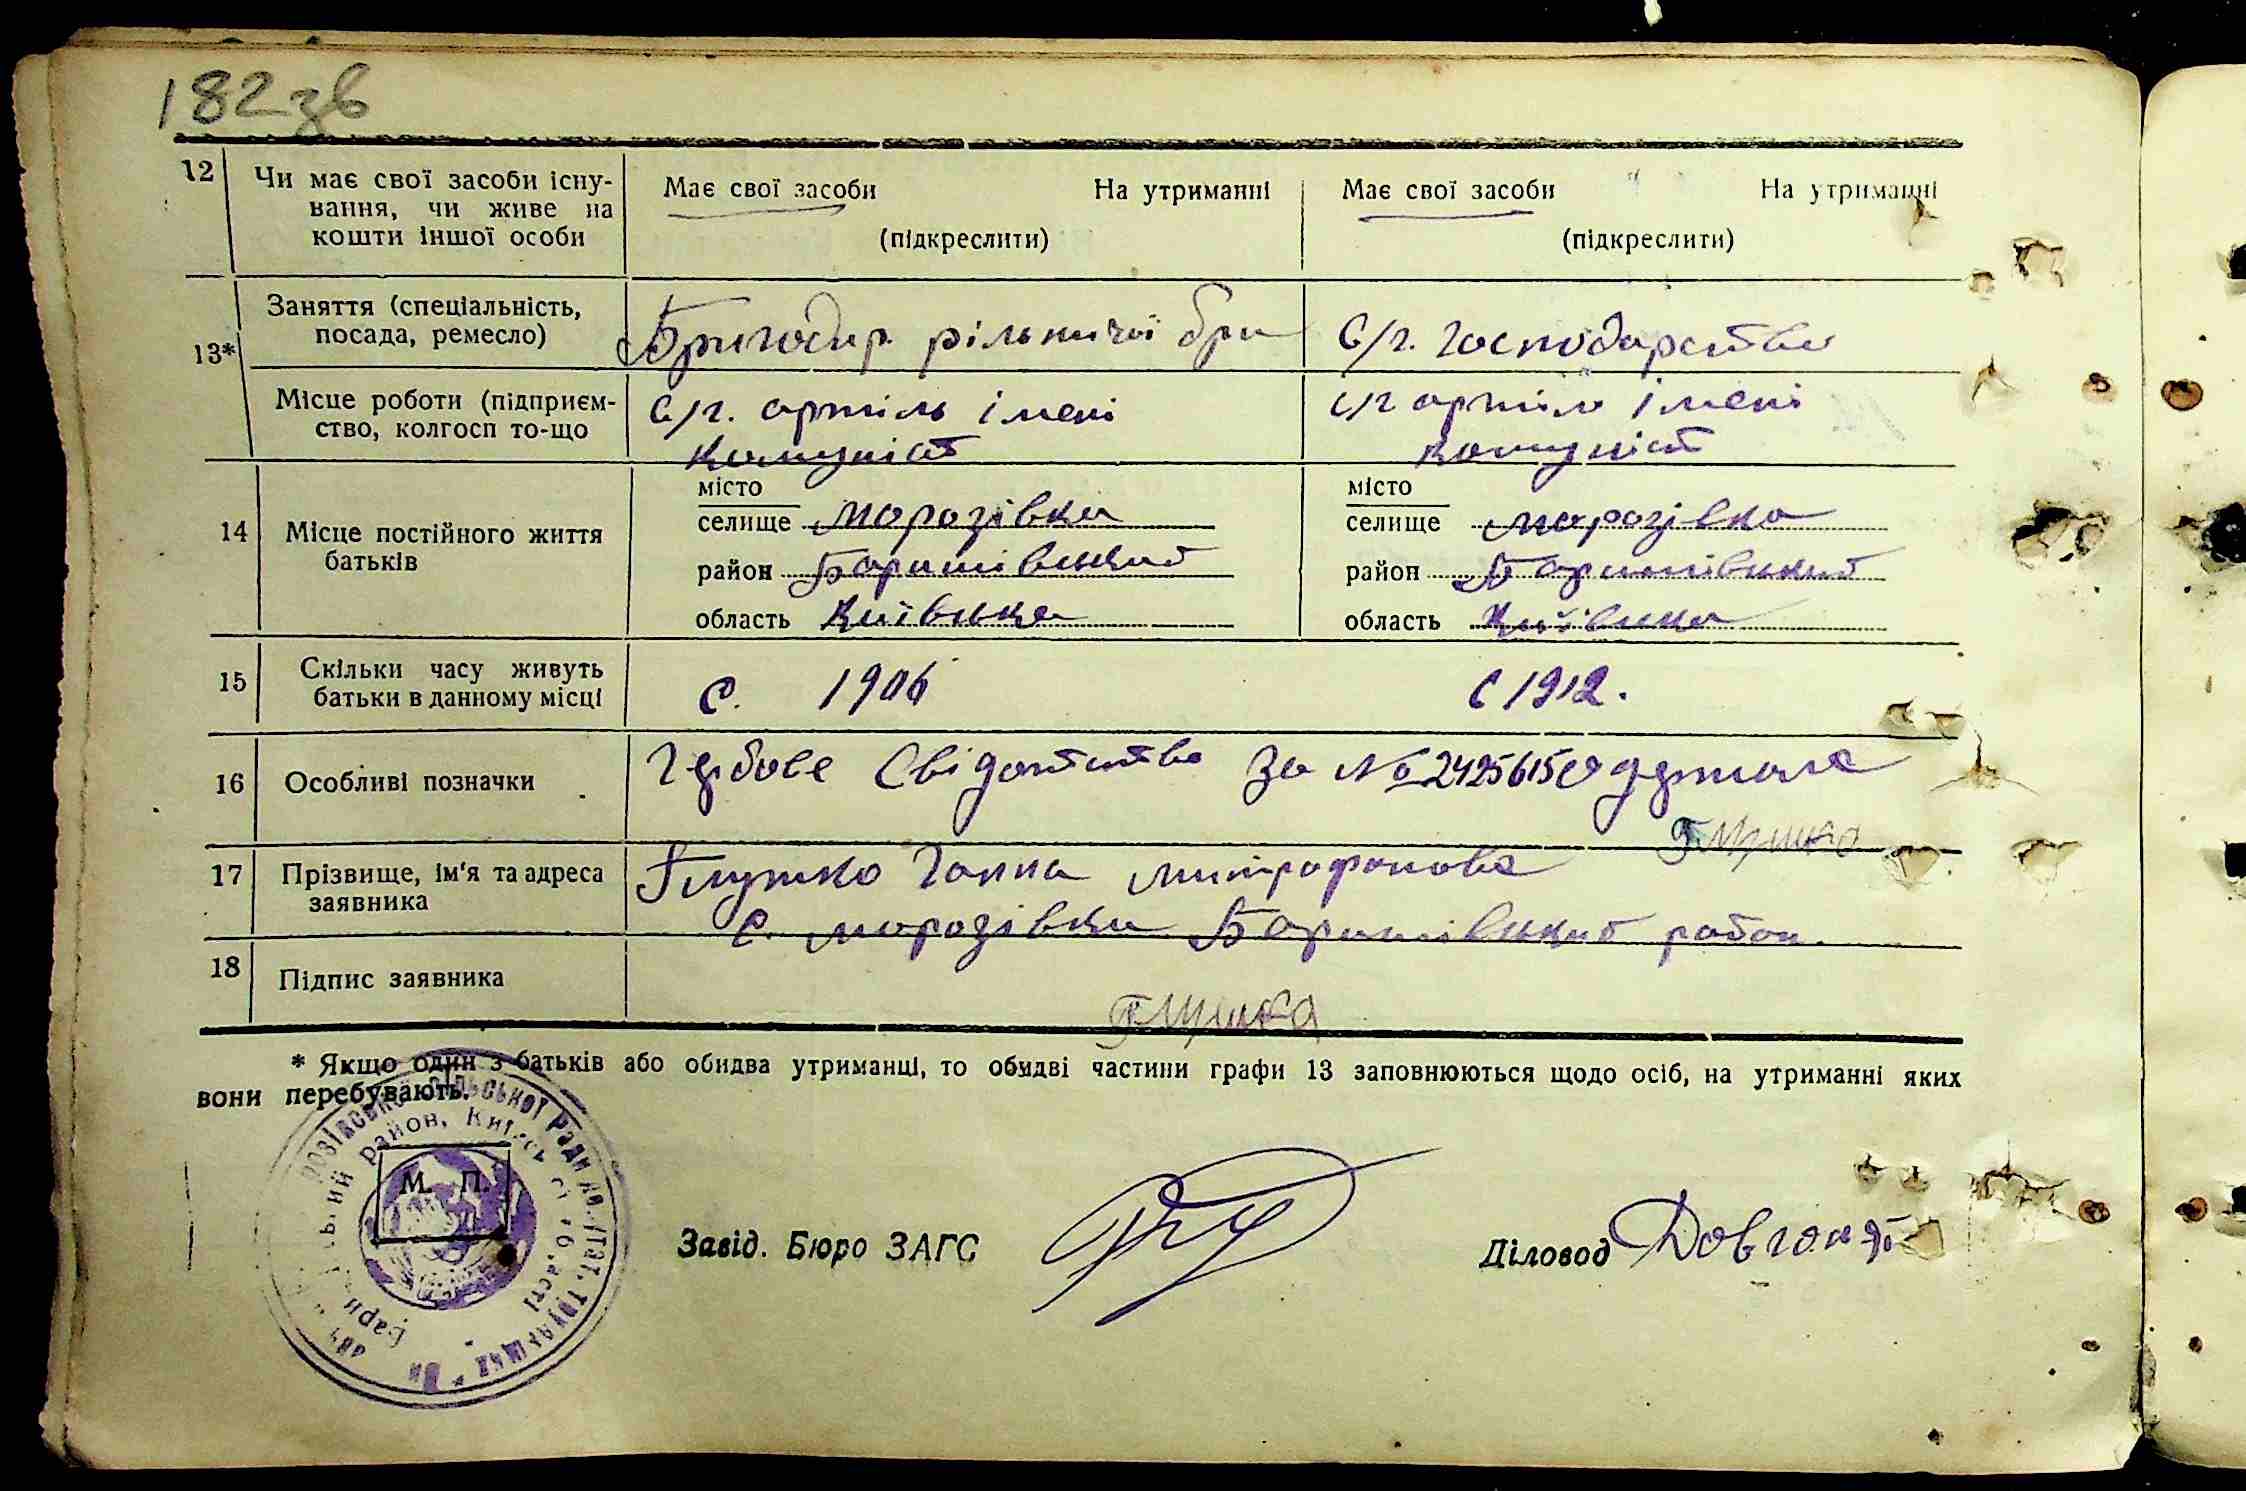 182зв
12
Чи має свої засоби існу-
вання, чи живе на
кошти іншої особи
Має свої засоби На утриманні
(підкреслити)
Має свої засоби На утриманні
(підкреслити)
13*
Заняття (спеціальність,
посада, ремесло)
Бригадир рільничої бри
С/г. господарство
Місце роботи (підприєм-
ство, колгосп то-що
С/г. артіль імені
Комуніст
с/г артіль імені
Комуніст
14
Місце постійного життя
батьків
місто
селище Морозівка
район Баришівський
область Київська
місто
селище Морозівка
район Баришівський
область Київська
15
Скільки часу живуть
батьки в данному місці
С. 1906
С 1912.
16
Особливі позначки
Гербове Свідоцтво за № 2425615 одержала
Глушко
17
Прізвище, ім'я та адреса
заявника
Глушко Ганна Митрофанова
С. Морозівка Баришівський район.
18
Підпис заявника
Глушко
* Якщо один з батьків або обидва утриманці, то обидві частини графи 13 заповнюються щодо осіб, на утриманні яких
вони перебувають.
М. П.
Завід. Бюро ЗАГС
Діловод